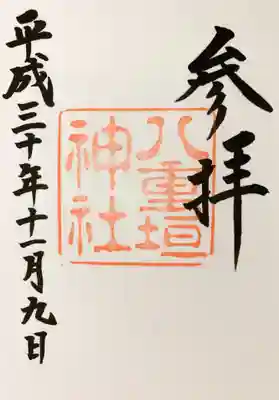 参拝
八重垣
神社
平成三十年十一月九日